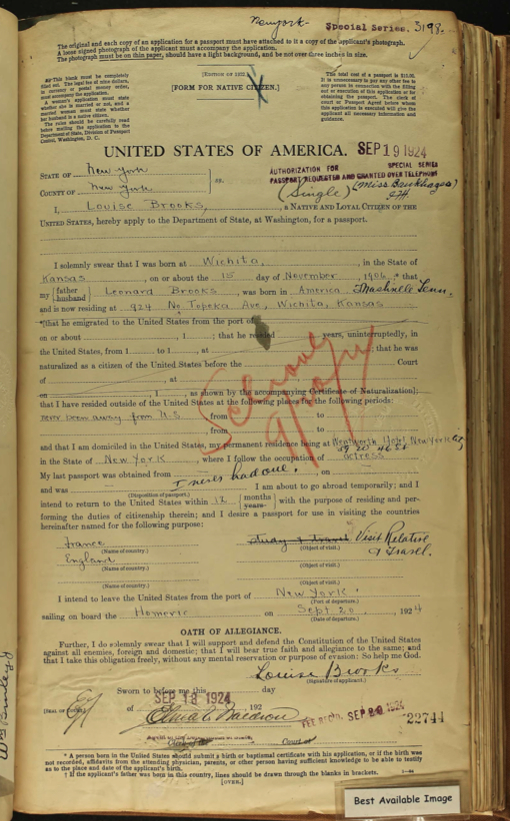 New York
Special Series. 3198.
The original and each copy of an application for a passport must have attached to it a copy of the applicant's photograph.
A loose signed photograph of the applicant must accompany the application.
The photograph must be on thin paper, should have a light background, and be not over three inches in size.
This blank must be completely
filled out. The legal fee of nine dollars,
in currency or postal money order,
must accompany the application.
A woman's application must state
whether she is married or not, and a
married woman must state whether
her husband is a native citizen.
The rules should be carefully read
before mailing the application to the
Department of State, Division of Passport
Control, Washington, D. C.
[EDITION OF 1922.]
[FORM FOR NATIVE CITIZEN.]
The total cost of a passport is $10.00.
It is unnecessary to pay any other fee to
any person in connection with the filling
out or execution of this application or for
obtaining the passport. The clerk of
court or Passport Agent before whom
this application is executed will give the
applicant all necessary information and
guidance.
UNITED STATES OF AMERICA.
SEP 19 1924
STATE OF New York
COUNTY OF New York
ss.
AUTHORIZATION FOR SPECIAL SERIES
PASSPORT REQUESTED AND GRANTED OVER TELEPHONE
(Single)
I, Louise Brooks, a NATIVE AND LOYAL CITIZEN OF THE
UNITED STATES, hereby apply to the Department of State, at Washington, for a passport.
I solemnly swear that I was born at Wichita, in the State of
Kansas, on or about the 15 day of November, 1906; * that
my {father husband} Leonard Brooks, was born in America Nashville Tenn.
and is now residing at 924 No. Topeka Ave, Wichita, Kansas
†[that he emigrated to the United States from the port of
on or about , 1 ; that he resided years, uninterruptedly, in
the United States, from 1 to 1 , at ; that he was
naturalized as a citizen of the United States before the Court
of , at ,
on , 1 , as shown by the accompanying Certificate of Naturalization];
that I have resided outside of the United States at the following places for the following periods:
never been away from U.S. , from to
, from to
and that I am domiciled in the United States, my permanent residence being at Wentworth Hotel, New York City
59 W 46 St
in the State of New York, where I follow the occupation of actress
My last passport was obtained from on
I never had one.
and was
(Disposition of passport.)
I am about to go abroad temporarily; and I
intend to return to the United States within 12 {months years} with the purpose of residing and per-
forming the duties of citizenship therein; and I desire a passport for use in visiting the countries
hereinafter named for the following purpose:
France
(Name of country.)
study & travel Visit Relative
(Object of visit.)
& Travel.
England
(Name of country.)
(Object of visit.)
(Name of country.)
(Object of visit.)
I intend to leave the United States from the port of New York
(Port of departure.)
sailing on board the Homeric on Sept 20, 1924
(Date of departure.)
OATH OF ALLEGIANCE.
Further, I do solemnly swear that I will support and defend the Constitution of the United States
against all enemies, foreign and domestic; that I will bear true faith and allegiance to the same; and
that I take this obligation freely, without any mental reservation or purpose of evasion: So help me God.
Louise Brooks
(Signature of applicant.)
Sworn to before me this day
SEP 18 1924
of , 192
FEE REC'D. SEP 20 1924
22744
Court at
* A person born in the United States should submit a birth or baptismal certificate with his application, or if the birth was
not recorded, affidavits from the attending physician, parents, or other person having sufficient knowledge to be able to testify
as to the place and date of the applicant's birth.
† If the applicant's father was born in this country, lines should be drawn through the blanks in brackets.
[OVER.]
Best Available Image